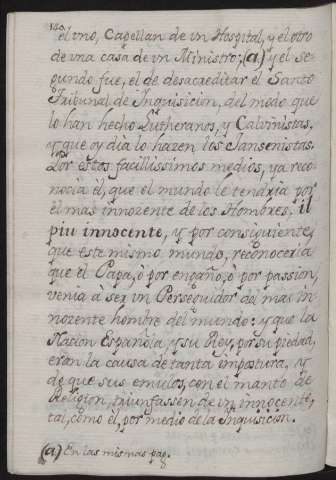 180.
el uno, Capellan de un Hospital, y el otro
de una casa de un Ministro; (a) y el se-
gundo fue, el de desacreditar el Santo
Tribunal de Inquisicion, del modo que
lo han hecho Lutheranos, y Calvinistas,
y que oy dia lo hazen los Jansenistas.
Por estos facilissimos medios, ya reco-
nocia él, que el mundo le tendria por
el mas innozente de los Hombres, il
piu innocente, y por consiguiente,
que este mismo mundo, reconoceria
que el Papa, ò por engaño, ò por passion,
venia à sèr un Perseguidor del mas in-
nozente hombre del mundo: y que la
Nacion Española, y su Rey, por su piedad,
eran la causa de tanta impostura, y
de que sus emulos, con el manto de
Religion, triunfassen de un innocente,
tal, como èl, por medio de la Inquisicion.
(a) En las mismas pag.